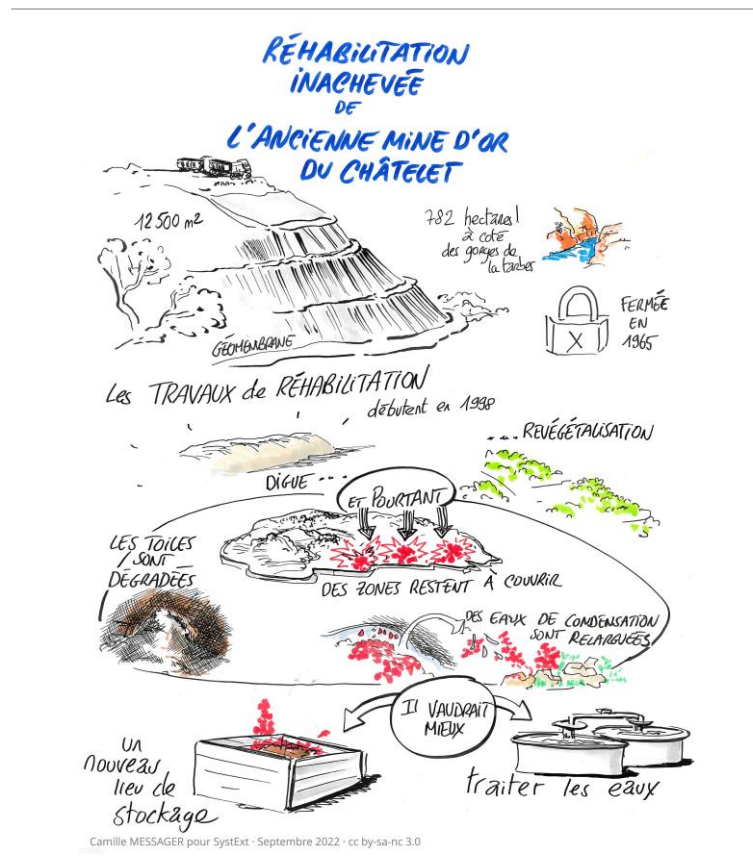 RÉHABILITATION
INACHEVÉE
DE
L'ANCIENNE MINE D'OR
DU CHÂTELET
12 500 m²
782 hectares !
à coté
des gorges de
la tardes
GÉOMEMBRANE
FERMÉE
EN
1965
X
Les TRAVAUX de RÉHABILITATION
débutent en 1998
... REVÉGÉTALISATION
DIGUE ...
ET POURTANT
LES TOILES
SONT
DÉGRADÉES
DES ZONES RESTENT À COUVRIR
DES EAUX DE CONDENSATION
SONT RELARGUÉES
Il VAUDRAIT
MIEUX
un
nouveau
lieu de
stockage
traiter les eaux
Camille MESSAGER pour SystExt · Septembre 2022 · cc by-sa-nc 3.0